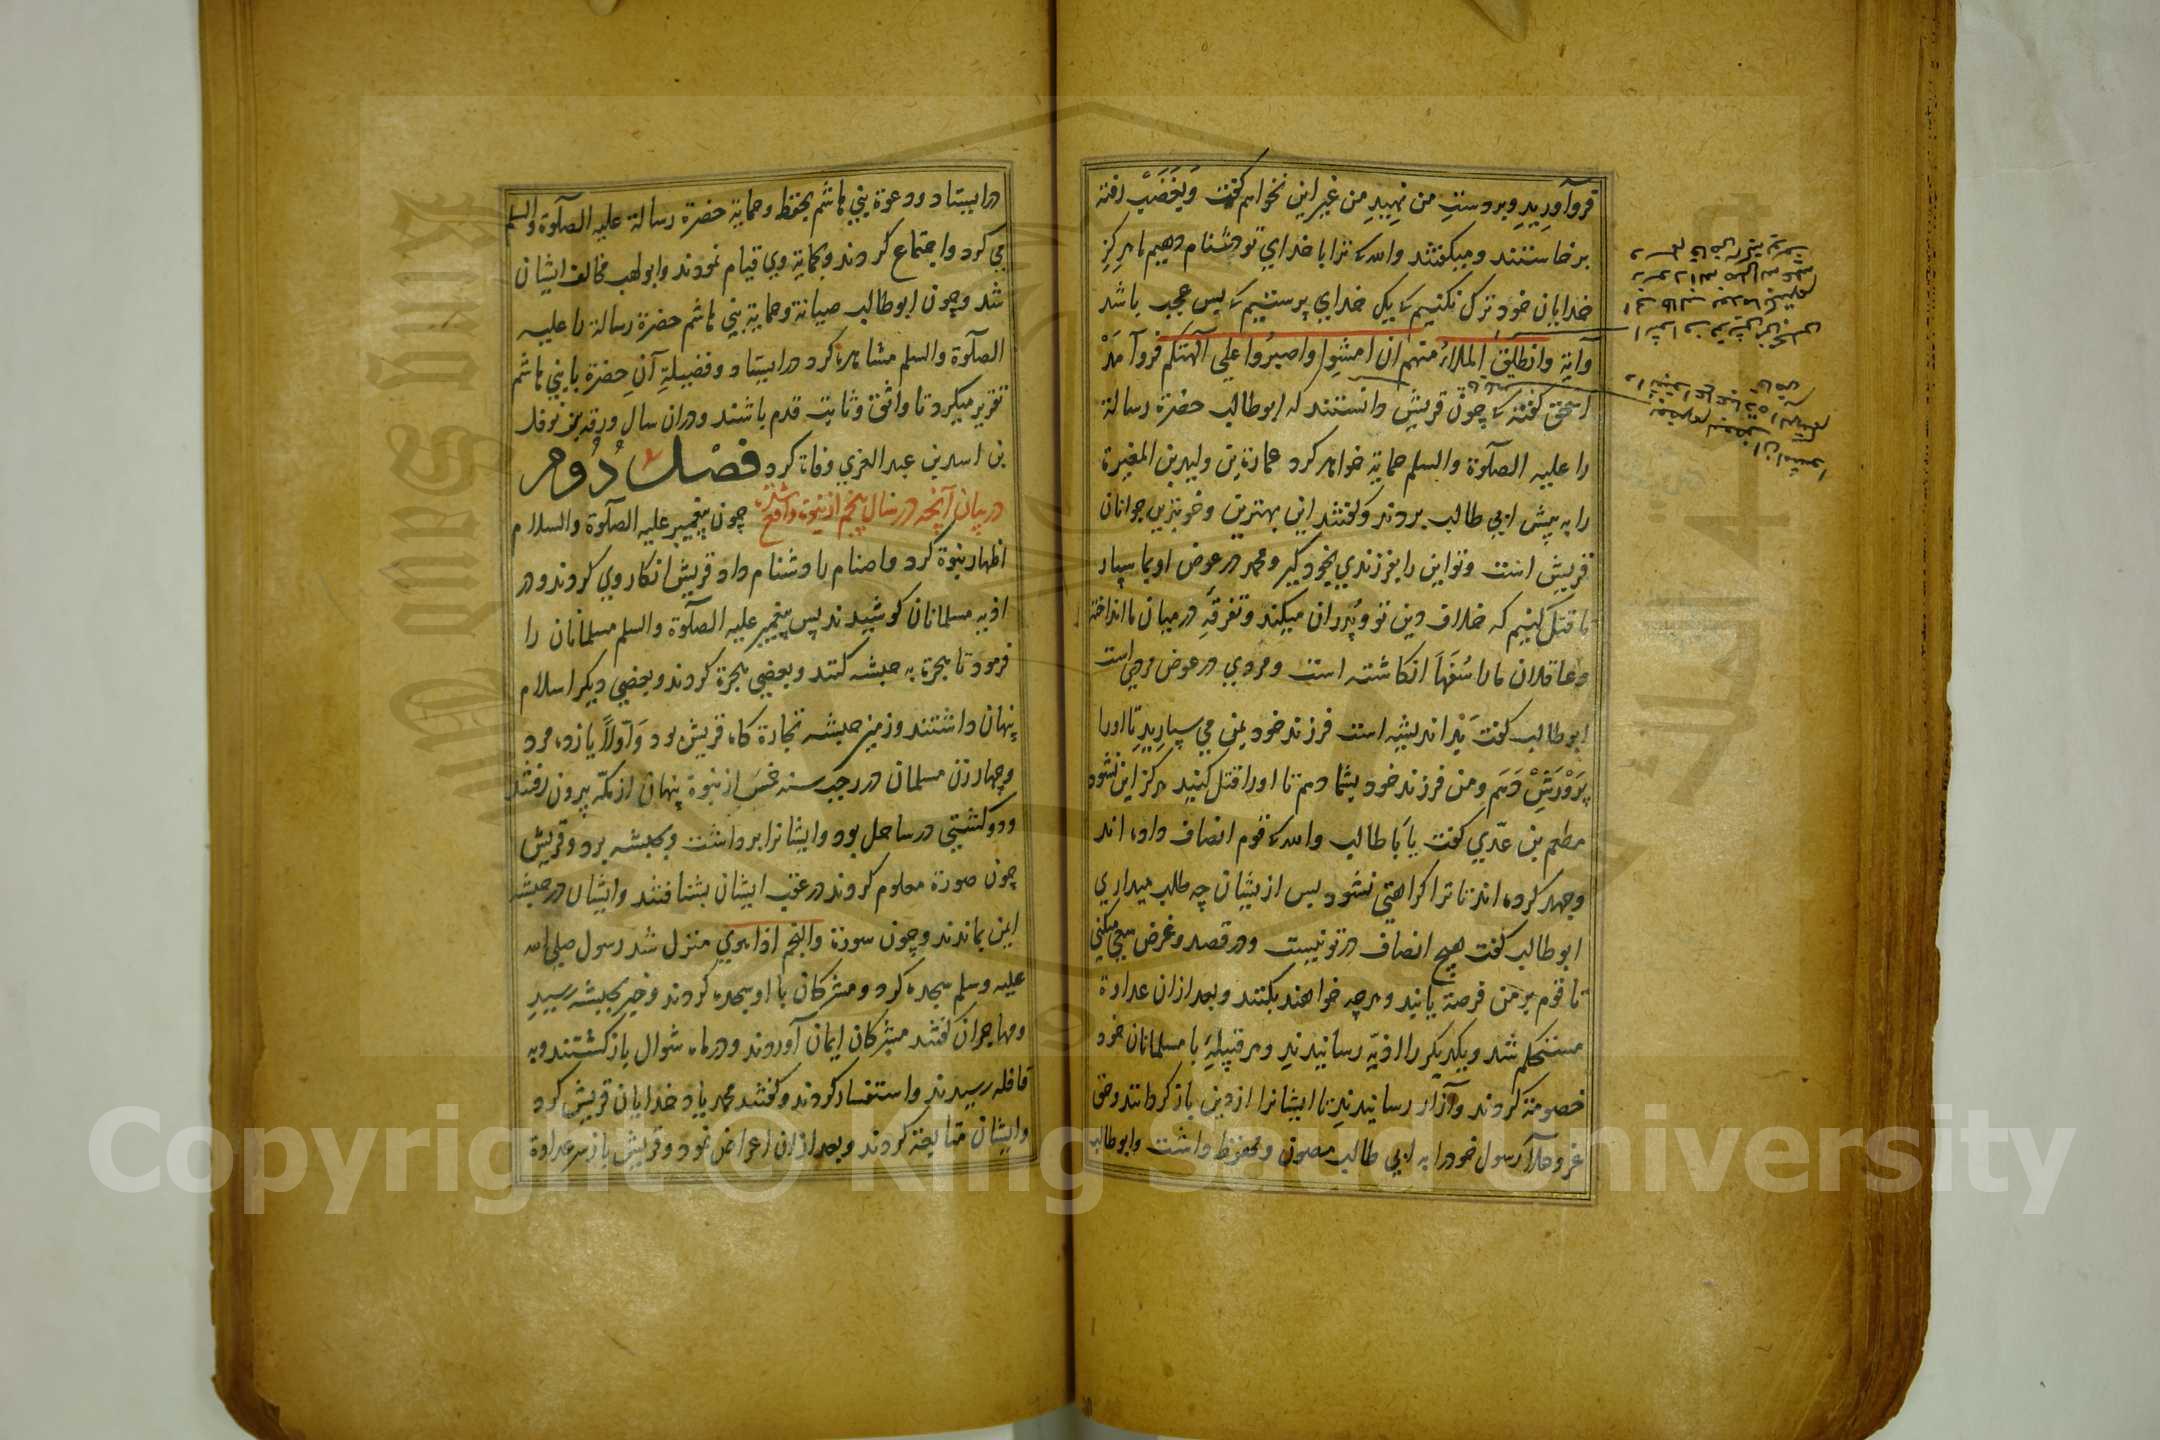 فرو آورید و بر دست من نهید من غیر این نخواهم گفت وَبِغَضَبْ رفته
برخاستند و میگفتند والله که ترا با خدای تو دشنام دهیم ما هرگز
خدایان خود ترک نکنیم که یک خدای پرستیم که بس عجب باشد
وآیة وانطلق الملاء منهم ان امشوا واصبروا علی آلهتکم فروآمَدْ
اسحق گفته که چون قریش دانستند که ابو طالب حضرة رسالة
را علیه الصلوة والسلم حمایة خواهد کرد عمارة بن ولید بن المغیرة
را به پیش ابی طالب بردند و گفتند این بهترین و خوبترین جوانان
قریش است و تو این را بفرزندی بخود گیر و محمد در عوض او بما سپار
تا قتل کنیم که خلاف دین تو و پدران میکند و تفرقه در میان ما انداخته
و عاقلان ما را سُفَهَا انکاشته است و مردی در عوض مردی است
ابو طالب گفت بَد اندیشه است فرزند خود بمن می سپارید تا اورا
پَرْوَرَشْ دَهَم و من فرزند خود بشما دهم تا اورا قتل کنید هرگز این نشود
مطعم بن عدّی گفت یا با طالب والله که قوم انصاف داده اند
وجهد کرده اند تا ترا کراهتی نشود پس ازیشان چه طلب میداری
ابو طالب گفت هیچ انصاف در تو نیست و در قصد و غرض سعی میکنی
تا قوم بر من فرصة یابند و هرچه خواهند بکنند و بعد ازان عداوة
مستحکم شد و یکدیگر را اذیه رسانیدند و هر قبیلهٔ با مسلمانان خود
خصومة کردند و آزار رسانیدند تا ایشانرا از دین باز کردانند و حق
عز و علا رسول خود را به ابی طالب مصون و محفوظ داشت و ابو طالب
در ایستاد و دعوة بنی هاشم بحفظ و حمایة حضرة رسالة علیه الصلوة والسلم
می کرد و اجتماع کردند و بحمایة وی قیام نمودند و ابو لهب مخالف ایشان
شد و چون ابو طالب صیانة و حمایة بنی هاشم حضرة رسالة را علیه
الصلوة والسلم مشاهده کرد در ایستاد و فضیلة آن حضرة با بنی هاشم
تقریر میکرد تا واثق و ثابت قدم باشند و دران سال ورقه بن نوفل
بن اسد بن عبد العزی وفاة کرد فصل دُوُم
در بیان آنچه در سال پنجم از نبوة واقع شده چون پیغمبر علیه الصلوة والسلام
اظهار نبوة کرد و اصنام را دشنام داد قریش انکار وی کردند و در
اذیه مسلمانان کوشیدند پس پیغمبر علیه الصلوة والسلم مسلمانان را
فرمود تا هجرة به حبشه کنند و بعضی هجرة کردند و بعضی دیگر اسلام
پنهان داشتند و زمین حبشه تجارة کاه قریش بود وَاَوّلاً یازده مرد
وچهار زن مسلمان در رجب سنه خمسَ از نبوة پنهان از مکّه بیرون رفتند
و دو کشتی در ساحل بود و ایشانرا برداشت و بحبشه برد و قریش
چون صورة معلوم کردند در عقب ایشان بشتافتند و ایشان در حبشه
ایمن بماندند و چون سورة والنجم اذا هوی منزل شد رسول صلی الله
علیه وسلم سجده کرد و مشرکان با او سجده کردند و خبر بحبشه رسید
و مهاجران گفتند مشرکان ایمان آوردند و در ماه شوال باز گشتند و به
قافله رسیدند و استفسار کردند و گفتند محمد یاد خدایان قریش کرد
و ایشان متابعة کردند و بعد ازان اعراض نمود و قریش باز سر عداوة
Copyright © King Saud University